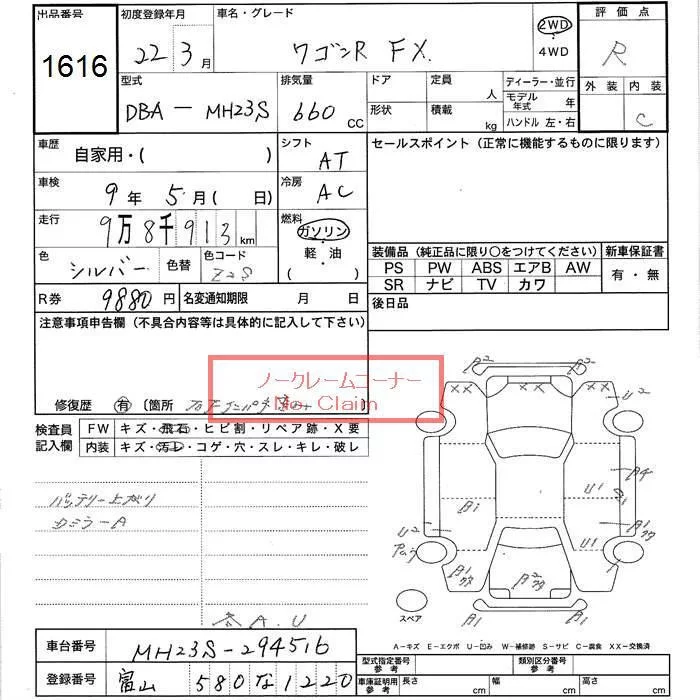 出品番号
1616
初度登録年月
22 3月
車名・グレード
ワゴンR FX
2WD
4WD
評価点
R
外装 内装
C
型式
DBA - MH23S
排気量
660 CC
ドア
形状
定員 人
積載 kg
ディーラー・並行
モデル年式 年
ハンドル 左・右
車歴
自家用・( )
シフト
AT
車検
9年 5月 ( 日)
冷房
AC
走行
9万8千913km
燃料
ガソリン
軽・油
( )
色
シルバー
色替
色コード
Z2S
R券 9880円
名変通知期限 月 日
セールスポイント(正常に機能するものに限ります)
装備品(純正品に限り○をつけてください)
新車保証書
PS PW ABS エアB AW
SR ナビ TV カワ
有・無
後日品
注意事項申告欄(不具合内容等は具体的に記入して下さい)
ノークレームコーナー
No Claim
修復歴 有 〔箇所
検査員記入欄
FW キズ・飛石・ヒビ割・リペア跡・X要
内装 キズ・汚レ・コゲ・穴・スレ・キレ・破レ
バッテリー上がり
カミラーA
各A.U
A2 A2
XX XX XX XX
U2
A4
A1 U1
U2 A1
U1
A1 A2
A1 A1
スペア
A-キズ E-エクボ U-凹み W-補修跡 S-サビ C-腐食 XX-交換済
車台番号
MH23S-294516
登録番号
富山 580 な 1220
型式指定番号 参考
類別区分番号 参考
車庫証明用 参考
長さ cm 幅 cm 高さ cm